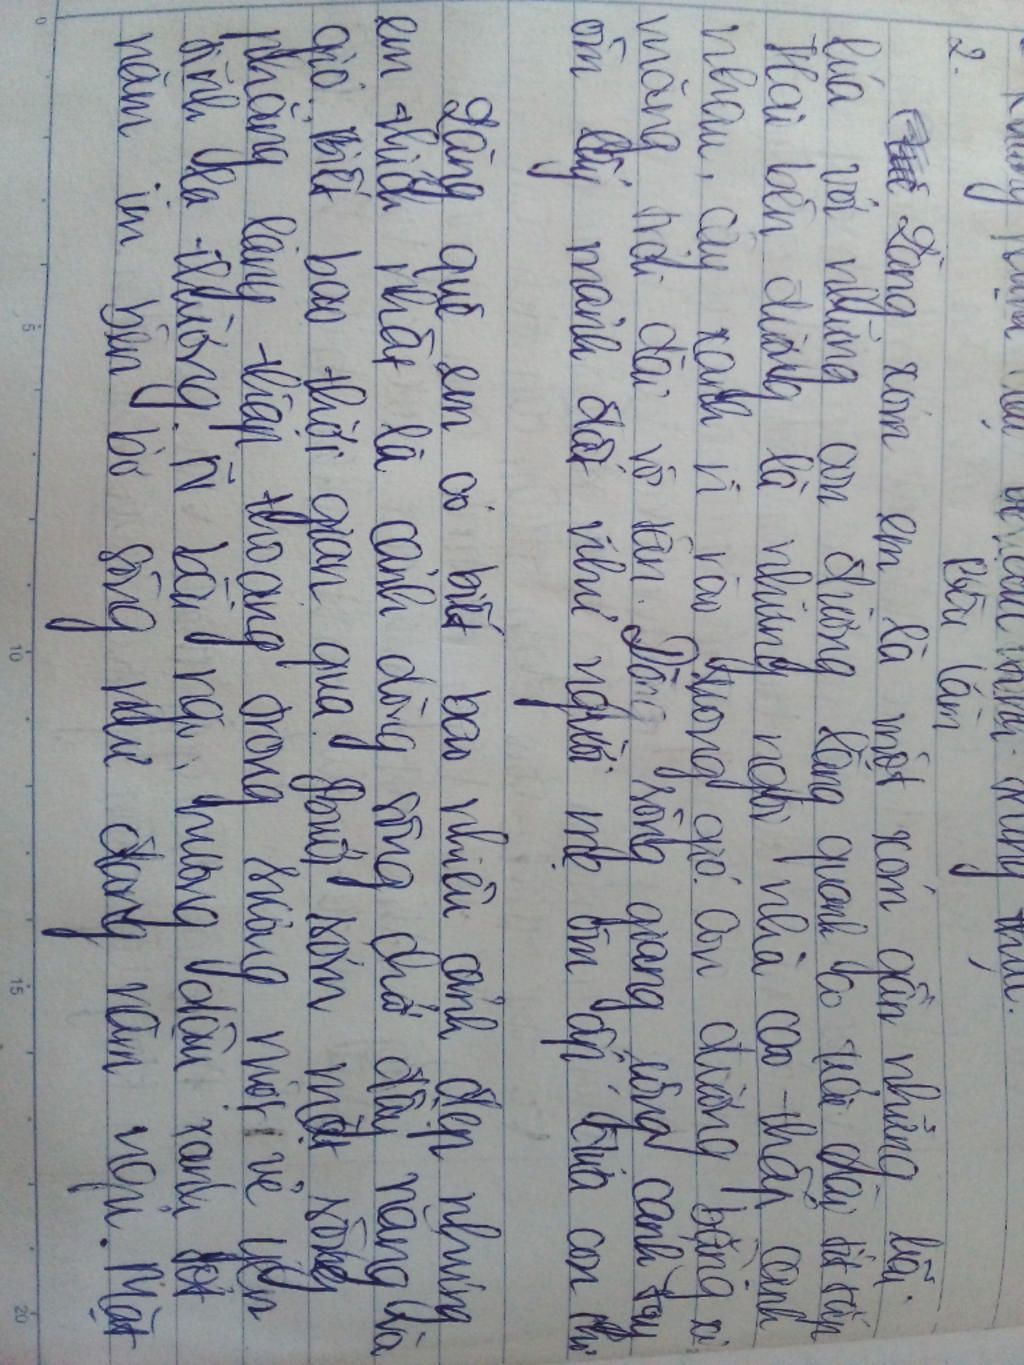 2.
Bài làm
Làng xóm em là một xóm gần những bãi
lúa với những con đường lòng quanh co uốn dài tít tắp
Hai bên đường là những ngôi nhà cao thấp cạnh
nhau, cây xanh rì rào trong gió. con đường bằng xi
măng trải dài vô tận. Dòng sông giang rộng cánh tay
ôm lấy mảnh đất như người mẹ ôm ấp đứa con
Làng quê em có biết bao nhiêu cảnh đẹp nhưng
em thích nhất là cảnh dòng sông chở đầy nắng và
gió. Biết bao thời gian qua. Buổi sớm mặt sông
phẳng lặng thấp thoáng trong sương một vẻ yên
bình lạ thường. Rì bãi ngô, nương dâu xanh
nằm im bên bờ sông như đang nằm ngủ. Mặt